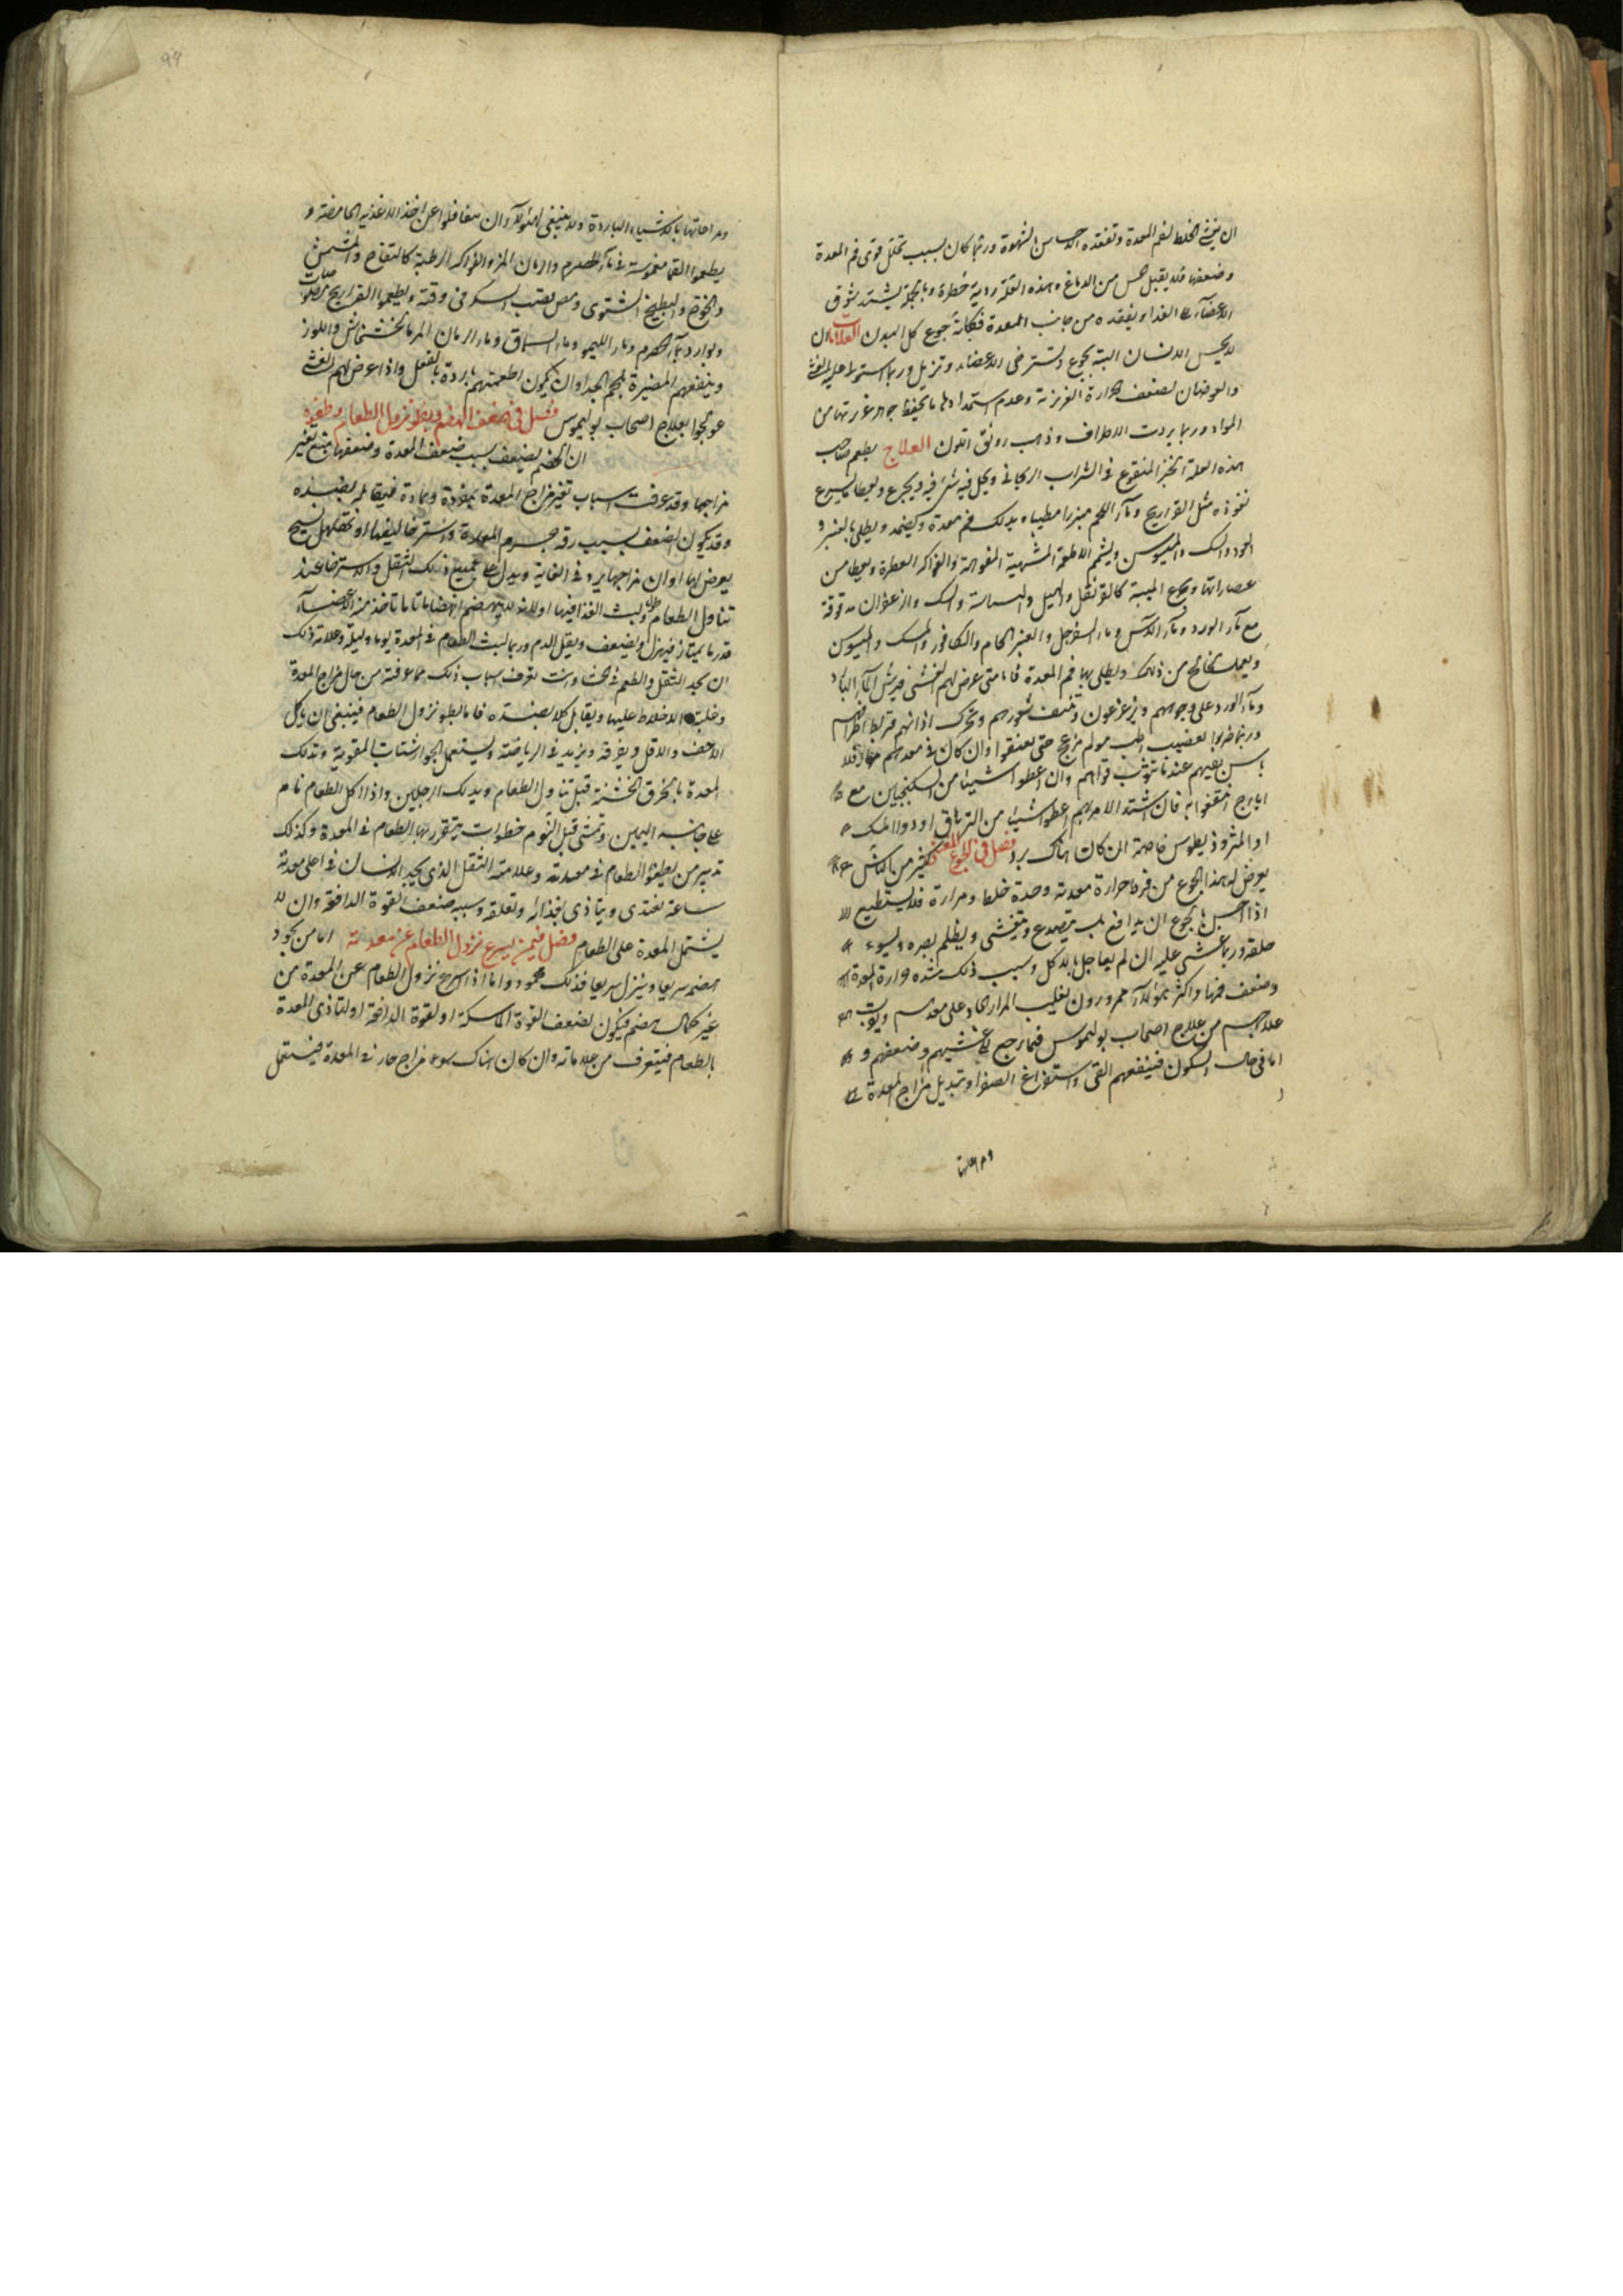 ان يغشي الخلط لفم المعدة وتفقده الحساس الشهوة وربما كان بسبب تحلل قوى فم المعدة
وضعفها فلا يقبل حس من الدماغ وهذه العلة ردية خطرة وبالجملة يشتد شوق
الاعضاء الى الغذا ويفقده من جانب المعدة فكانه جوع كل البدن العلامات ان
لا يحس الانسان البتة بجوع وتسترخى الاعضاء وتزيل وربما استولى عليه الغشى
والعرضان لضعف الحرارة الغريزية وعدم استمدادها ما يحفظ جوهر غريزتها من
المواد وربما بردت الاطراف وذهب رونق اللون العلاج يطعم صاحب
هذه العلة الخبز المنقوع في الشراب الريحاني ويجعل فيه شىء فيه ويجرع ويعطا ما يسرع
نفوذه مثل الفراريج وماء اللحم مبزرا مطيبا ويدلك فم معدته ويضمد ويطلى بالعنبر و
العود والمسك والميسوسن ويشمم الاطعمة المشهية المفوهة والفواكه العطرة ويعطا من
عصاراتها ويجرع الميبة كالقرنفل والهيل والبسباسة والمسك والزعفران مدقوقة
مع ماء الورد وماء الآس وماء السفرجل والعنبر الخام والكافور والمسك والميسوسن
ويعمل لخالخ من ذلك ويطلى بها فم المعدة فاما متى عرض لهم الغشى فيرش الماء البارد
وماء الورد على وجوههم ويزعزعون وتنتف شعورهم وتحرك اذانهم وتربط اطرافهم
وربما ضربوا بقضيب ضرب مولم مزعج حتى يفيقوا وان كان في معدهم مرار فلا
باس بقيهم عند ما تثوب قواهم وان اعطوا شيئا من السكنجبين مع
ايارج انتفعوا به فان اشتد الامر بهم اعطوا شيئا من الترياق او دوا المسك
او المثروذيطوس خاصة ان كان هناك برد فصل في الجوع المغشى كثير من الناس
يعرض له هذا الجوع من فرط حرارة معدته وحدة خلط ومرارة فلا يستطيع
اذا احس بالجوع ان يدافع بل يتصدع ويتغشى ويظلم بصره ويسوء
خلقه وربما غشى عليه ان لم يعاجل بالاكل وسبب ذلك شدة حرارة المعدة
وضعف فمها واكثر هؤلاء محرورون يغلب المرار الحاد على معدهم ويقرب
علاجهم من علاج اصحاب بوليموس فيما يرجع الى غشيهم وضعفهم و
اما في حال السكون فينفعهم القى واستفراغ الصفرا وتبديل مزاج المعدة
ومراعاتها
99
ومراعاتها بالاشياء الباردة ولا ينبغى لهؤلاء ان يتغافلوا عن اخذ الاغذية الحامضة و
يطعموا لقما مغموسة في ماء الحصرم والرمان المز والفواكه الرطبة كالتفاح والمشمش
والخوخ والبطيخ الشتوى ومص قصب السكر في وقته ويطعموا الفراريج مصوصات
وبوارد بماء الحصرم وماء الليمو وماء السماق وماء الرمان المر بالخشخاش واللوز
وينفعهم المضيرة بلحم الجدا وان يكون اطعمتهم باردة بالفعل واذا عرض لهم الغشى
عولجوا بعلاج اصحاب بوليموس فصل في ضعف الهضم وبطو نزول الطعام وطفوه
ان الهضم يضعف بسبب ضعف المعدة وضعفها يتبع تغير
مزاجها وقد عرفت اسباب تغير مزاج المعدة بمفردة وبمادة فيقابله بضده
وقد يكون الضعف بسبب رقة جرم المعدة واسترخا ليفها او تهلهل نسيج
يعرض لها او ان مزاجها يرد في الغاية ويدل على جميع ذلك الثقل والاسترخا عند
تناول الطعام وطول لبث الغذا فيها او لانه لا ينهضم انهضاما تاما تاخذ منه الاعضآء
قدر ما يمتار فيهزل ويضعف ويقل الدم وربما لبث الطعام في المعدة يوما وليلة وعلامة ذلك
ان يجد الثقل والطعم في الجشا وانت تعرف اسباب ذلك مما عرفته من حال مزاج المعدة
وغلبة الاخلاط عليها ويقابل كلا بضده فاما بطو نزول الطعام فينبغى ان ياكل
الاخف والاقل ويفرقه ويزيد في الرياضة ويستعمل الجوارشنات المقوية وتدلك
المعدة بالخرق الخشنة قبل تناول الطعام ويدلك الرجلين واذا اكل الطعام نام
على جانبه اليمين وتمشى قبل النوم خطوات يتقرر بها الطعام في المعدة وكذلك
تدبير من يطفو الطعام في معدته وعلامته الثقل الذى يجد الانسان في اعلى معدته
ساعة يغتدى ويتاذى بغذائه وتعلقه وسببه ضعف القوة الدافعة وان لا
يشتمل المعدة على الطعام فصل فيمن يسرع نزول الطعام عن معدته اما من يجود
هضمه سريعا وينزل سريعا فذلك محمود واما اذا اسرع نزول الطعام عن المعدة من
غير كمال هضم فيكون لضعف القوة الماسكة او لقوة الدافعة او لتاذى المعدة
بالطعام فيتعرف من علاماته وان كان هناك سوء مزاج حار في المعدة فيستعمل